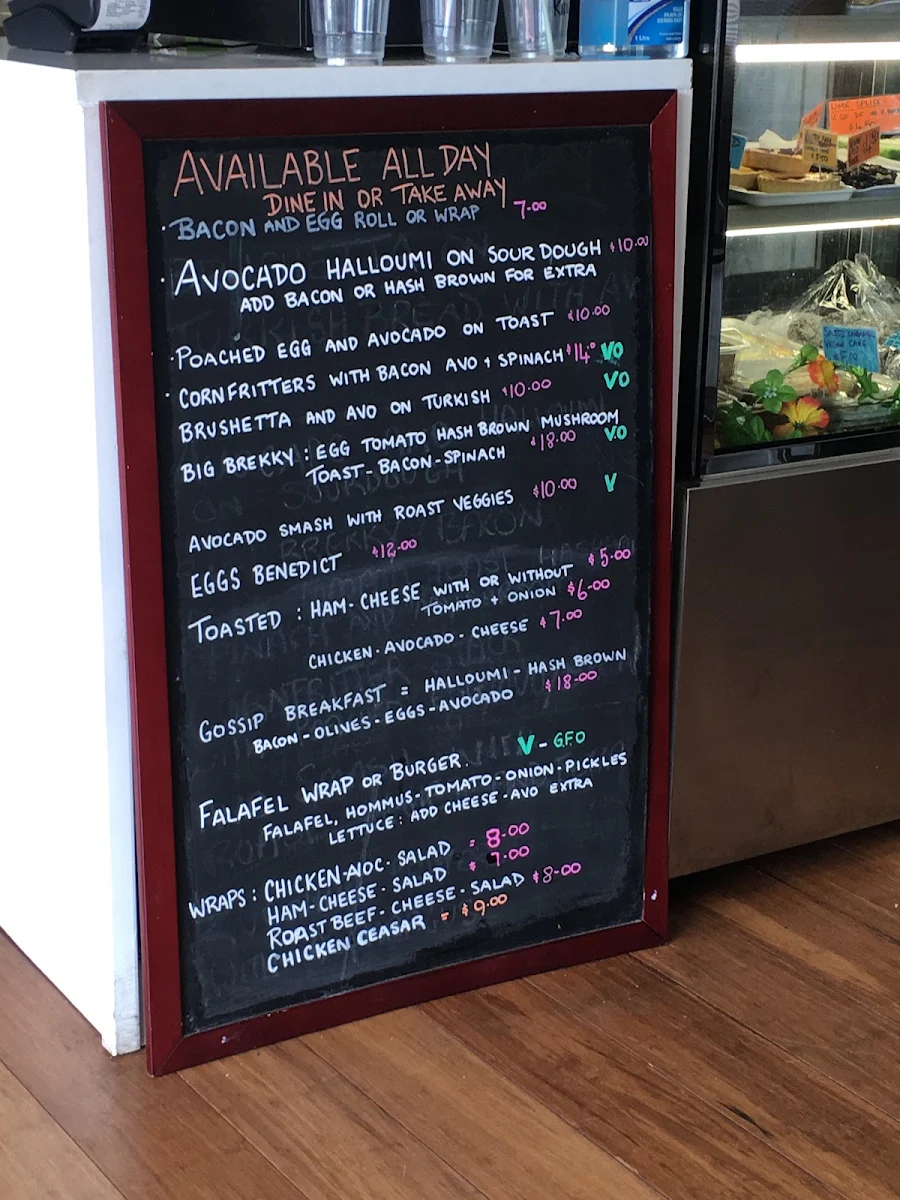 AVAILABLE ALL DAY
DINE IN OR TAKE AWAY
• BACON AND EGG ROLL OR WRAP 7-00
• AVOCADO HALLOUMI ON SOUR DOUGH $10.00
ADD BACON OR HASH BROWN FOR EXTRA
• POACHED EGG AND AVOCADO ON TOAST $10.00
• CORNFRITTERS WITH BACON AVO + SPINACH $14° VO
BRUSHETTA AND AVO ON TURKISH $10.00 VO
BIG BREKKY : EGG TOMATO HASH BROWN MUSHROOM
TOAST - BACON - SPINACH $18.00 V.O
AVOCADO SMASH WITH ROAST VEGGIES $10.00 V
EGGS BENEDICT $12.00
TOASTED : HAM - CHEESE WITH OR WITHOUT $5.00
TOMATO + ONION $6-00
CHICKEN · AVOCADO · CHEESE $7.00
GOSSIP BREAKFAST = HALLOUMI - HASH BROWN
BACON - OLIVES - EGGS - AVOCADO $18-00
FALAFEL WRAP OR BURGER. V - G.F.O
FALAFEL, HOMMUS - TOMATO - ONION - PICKLES
LETTUCE : ADD CHEESE - AVO EXTRA
WRAPS : CHICKEN - AVOC · SALAD = 8.00
HAM - CHEESE - SALAD $ 7.00
ROAST BEEF - CHEESE - SALAD $8-00
CHICKEN CEASAR = $9.00
LIME